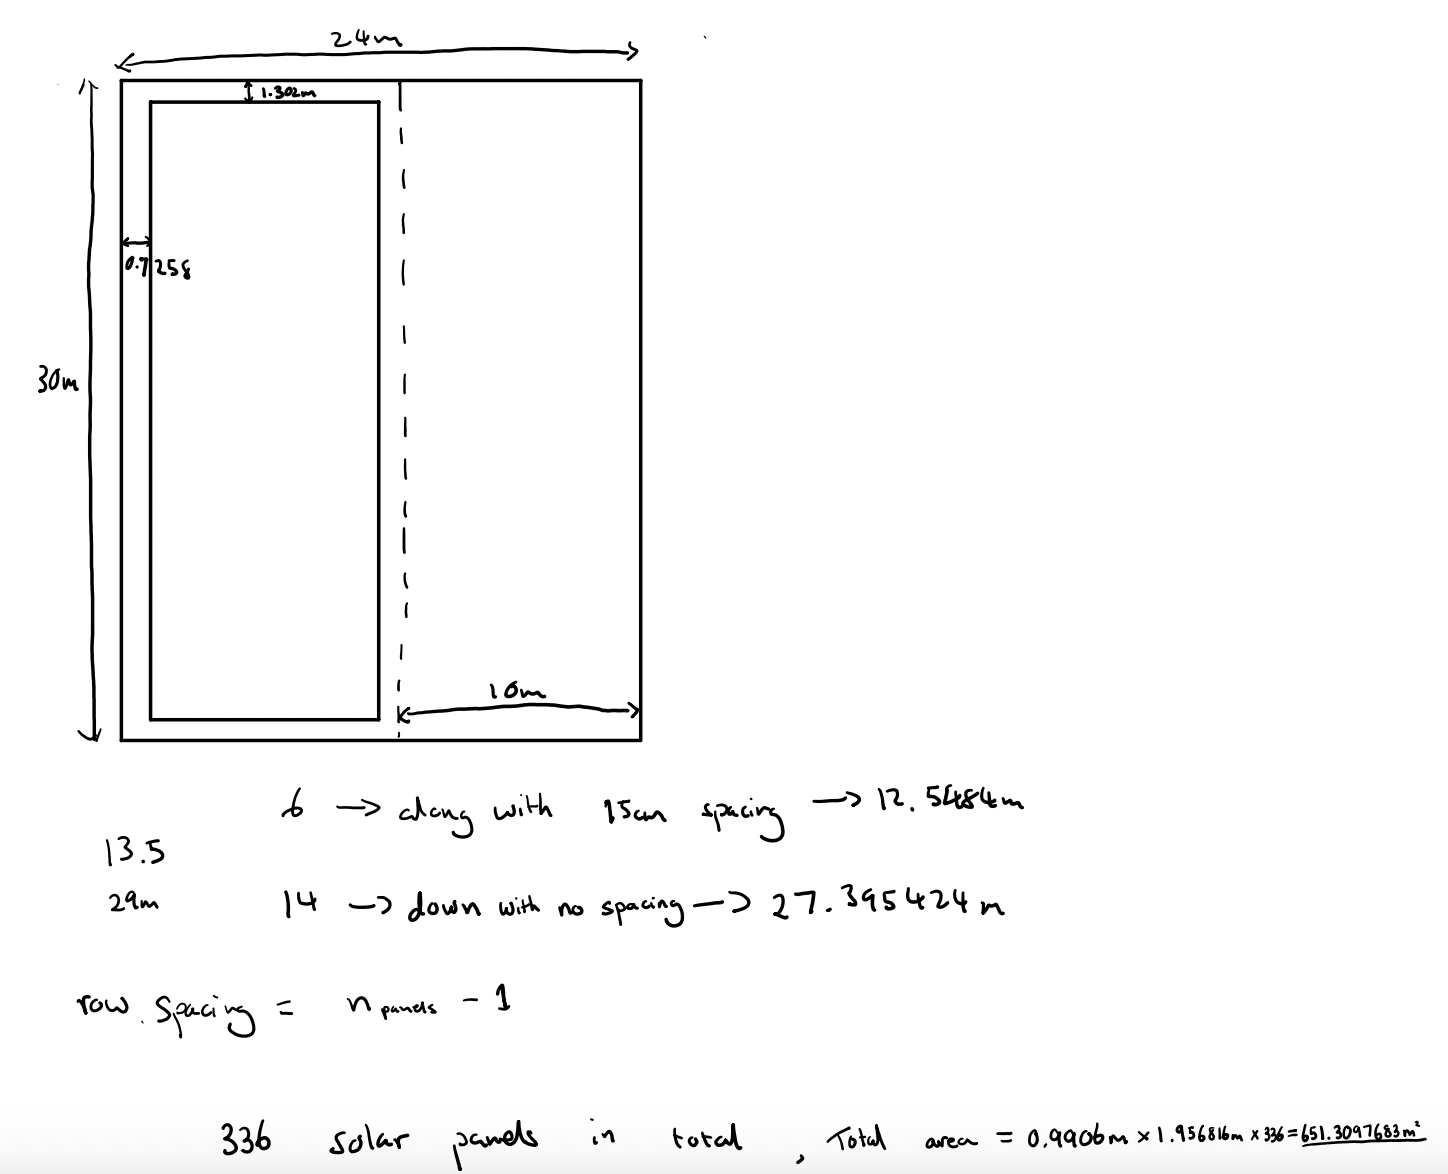 24m
1.302m
0.7258
30m
10m
6 → along with 15cm spacing → 12.5484m
13.5
29m 14 → down with no spacing → 27.395424m
row spacing = n panels - 1
336 solar panels in total, Total area = 0.9906m × 1.956816m × 336 = 651.3097683m²